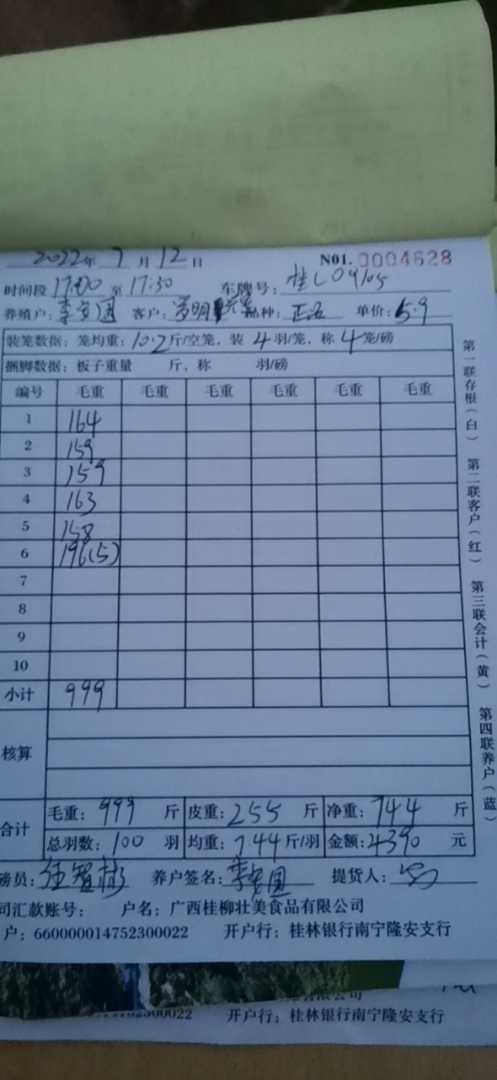 2022年 7 月 12 日 N01. 0004628
时间段 17:00 至 17:30 车牌号: 桂L09105
养殖户: 客户: 品种: 单价: 5.9
装笼数据: 笼均重: 10.2 斤/空笼, 装 4 羽/笼, 称 4 笼/磅
捆脚数据: 板子重量 斤, 称 羽/磅
编号 毛重 毛重 毛重 毛重 毛重 毛重
1 164
2 159
3 159
4 163
5 158
6 196(5)
7
8
9
10
小计 999
核算
合计 毛重: 999 斤 皮重: 255 斤 净重: 744 斤
总羽数: 100 羽 均重: 7.44 斤/羽 金额: 4390 元
磅员: 养户签名: 提货人:
司汇款账号: 户名: 广西桂柳壮美食品有限公司
户: 660000014752300022 开户行: 桂林银行南宁隆安支行
第一联存根(白) 第二联客户(红) 第三联会计(黄) 第四联养户(蓝)
52300022 开户行: 桂林银行南宁隆安支行